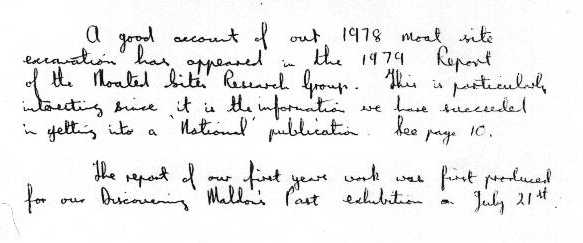 A good account of our 1978 moat site
excavation has appeared in the 1979 Report
of the Moated Sites Research Group. This is particularly
interesting since it is the information we have succeeded
in getting into a 'National' publication. See page 10.
The report of our first years work was first produced
for our Discovering Maldon's Past exhibition on July 21st.